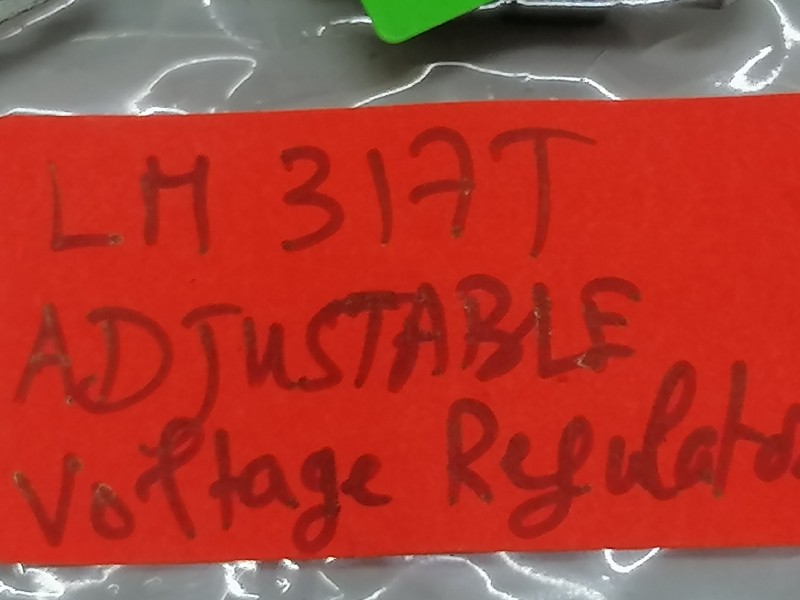 LM 317T
ADJUSTABLE
Voltage Regulator